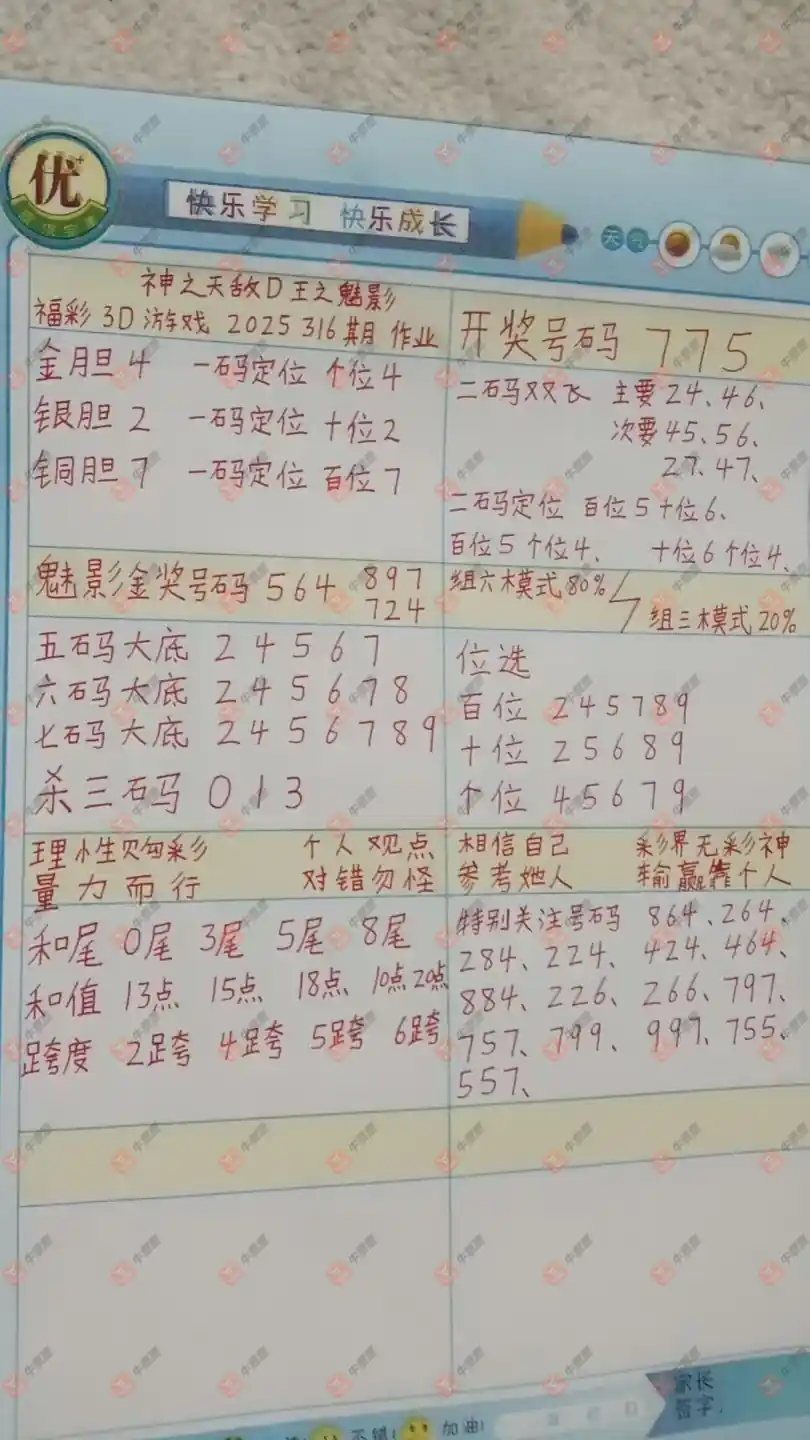 优
快乐学习 快乐成长
天气
神之天敌D王之魅影
福彩 3D 游戏 2025 316 期 作业
开奖号码 775
金胆 4 一码定位 个位4
银胆 2 一码定位 十位2
铜胆 7 一码定位 百位7
二码双飞 主要24、46、
次要45、56、
27、47、
二码定位 百位5十位6、
百位5个位4、 十位6个位4、
魅影金奖号码 564 897
724
组六模式80%
组三模式20%
五码大底 2 4 5 6 7
六码大底 2 4 5 6 7 8
七码大底 2 4 5 6 7 8 9
杀三码 0 1 3
位选
百位 245789
十位 25689
个位 45679
理小性购彩 个人观点
量力而行 对错勿怪
相信自己 彩界无彩神
参考她人 输赢靠个人
和尾 0尾 3尾 5尾 8尾
和值 13点 15点 18点 10点20点
跨度 2跨 4跨 5跨 6跨
特别关注号码 864、264、
284、224、424、464、
884、226、266、797、
757、799、997、755、
557、
家长
签字:
加油!